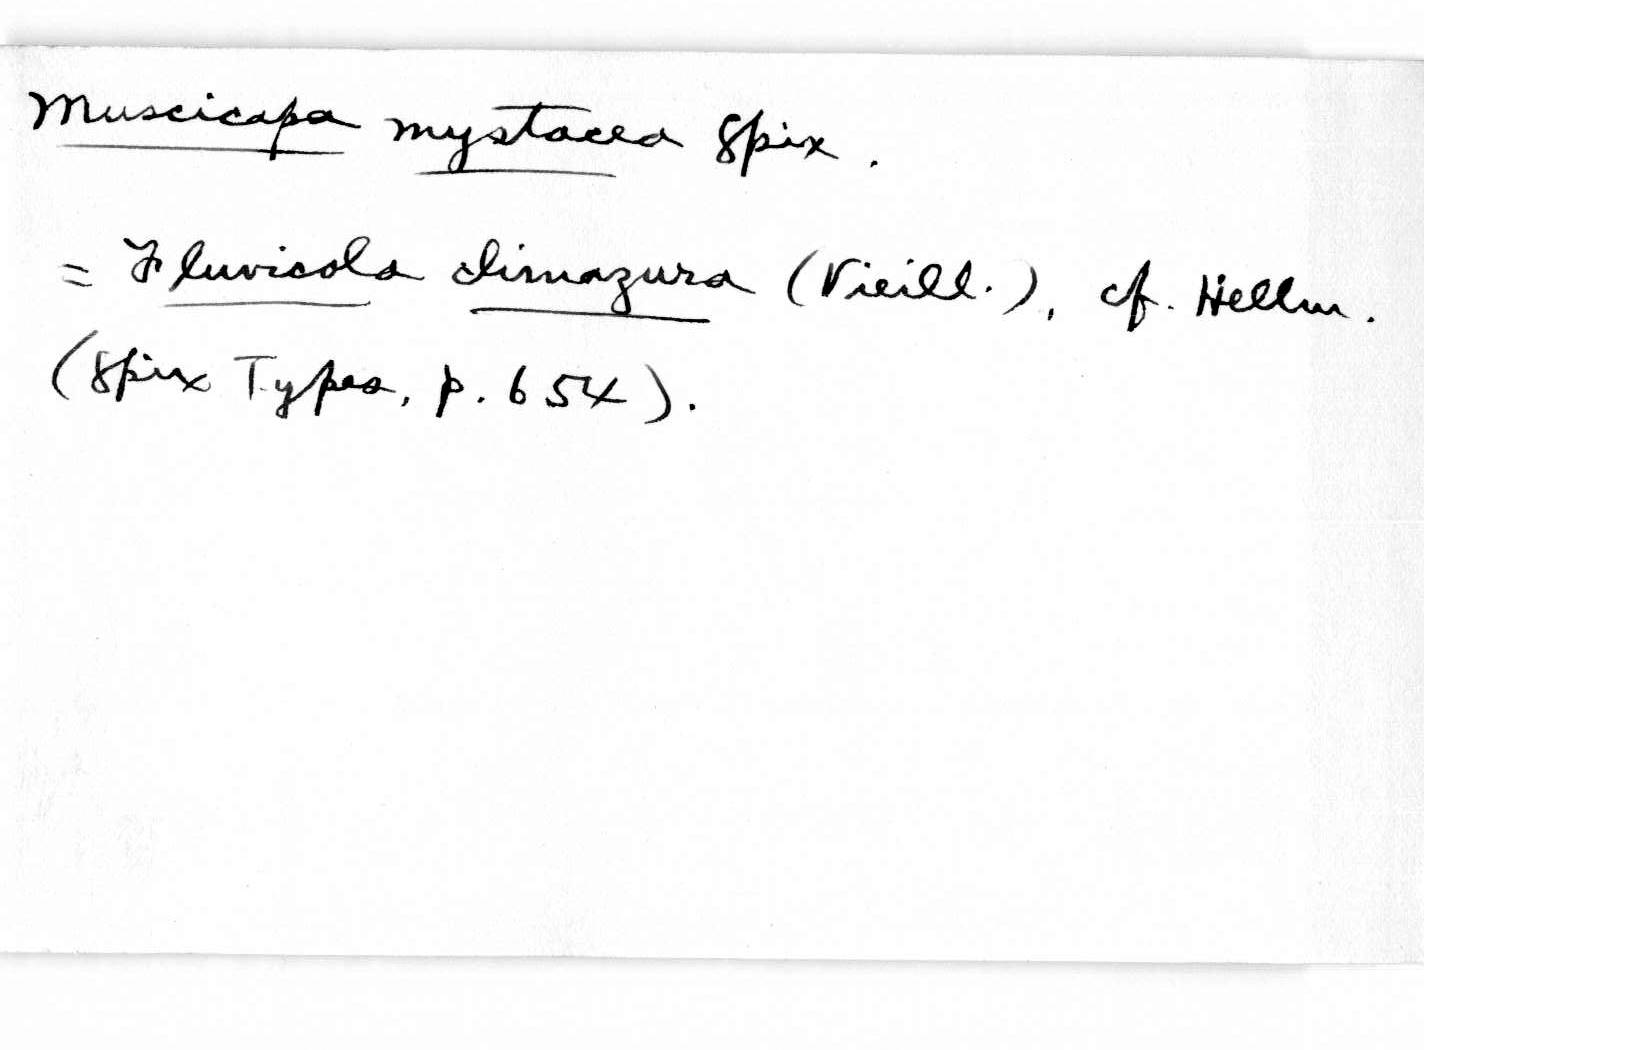 Muscicapa mystacea Spix.
= Fluvicola climazura (Vieill.), cf. Hellm.
(Spix Types, p. 654).